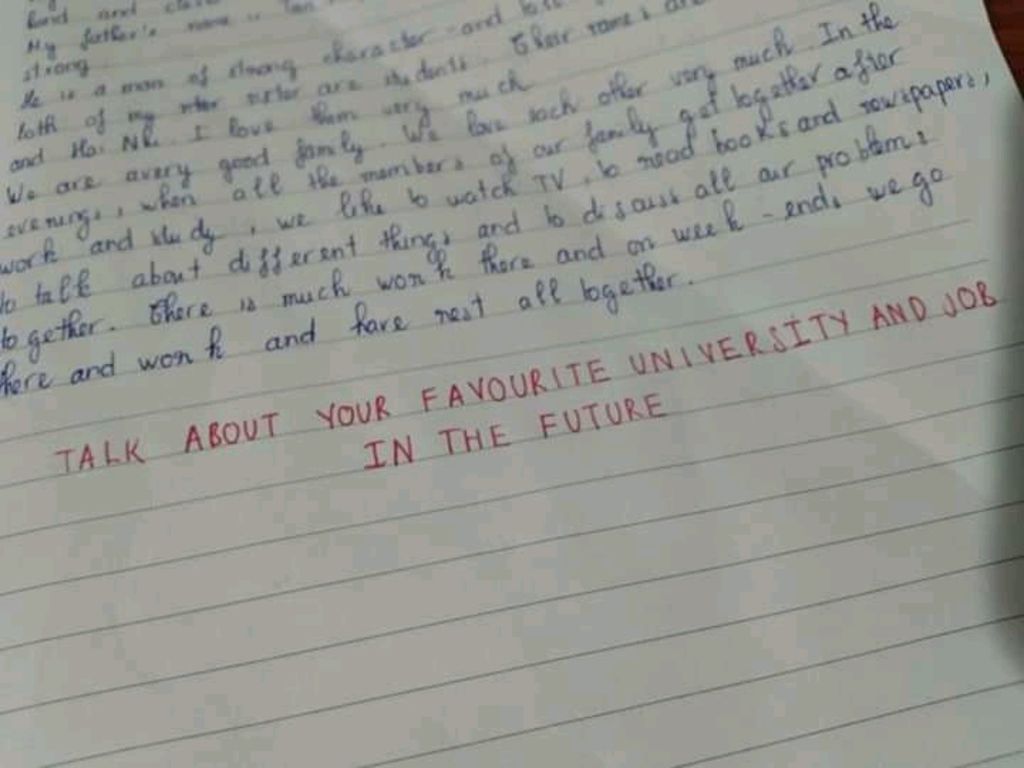 My father's name is
strong
He is a man of strong character and
both of my sister are students. Their name's are
and Ha. Nh. I love them very much
We are avery good family. We love each other very much. In the
evenings, when all the members of our family get together after
work and study, we like to watch TV, to read books and newspapers,
to talk about different things and to discuss all our problems
together. There is much work there and on week-ends we go
here and work and have rest all together.
TALK ABOUT YOUR FAVOURITE UNIVERSITY AND JOB
IN THE FUTURE